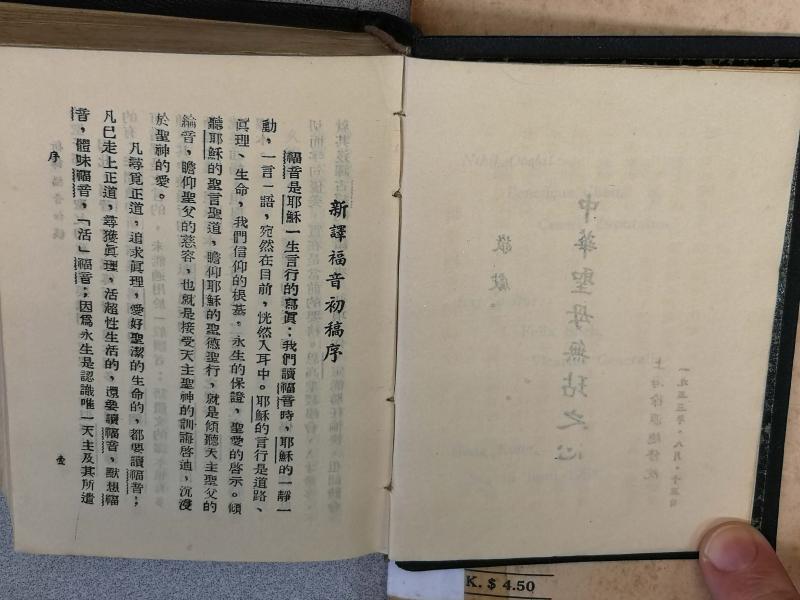 一九五三年,八月,十五日
上海徐滙總修院
中華聖母無玷之心
敬獻。
新譯福音初稿序
福音是耶穌一生言行的寫眞:我們讀福音時,耶穌的一靜一
動,一言一語,宛然在目前,恍然入耳中。耶穌的言行是道路、
眞理、生命,我們信仰的根基,永生的保證,聖愛的啓示。傾
聽耶穌的聖言聖道,瞻仰耶穌的聖德聖行,就是傾聽天主聖父的
綸音,瞻仰聖父的慈容,也就是接受天主聖神的訓誨啓迪,沉浸
於聖神的愛。
凡尋覓正道,追求眞理,愛好聖潔的生命的,都要讀福音;
凡已走上正道,尋獲眞理,活超性生活的,還要讀福音,默想福
音,體味福音,「活」福音;因爲永生是認識唯一天主及其所遣
序 壹
K. $ 4.50